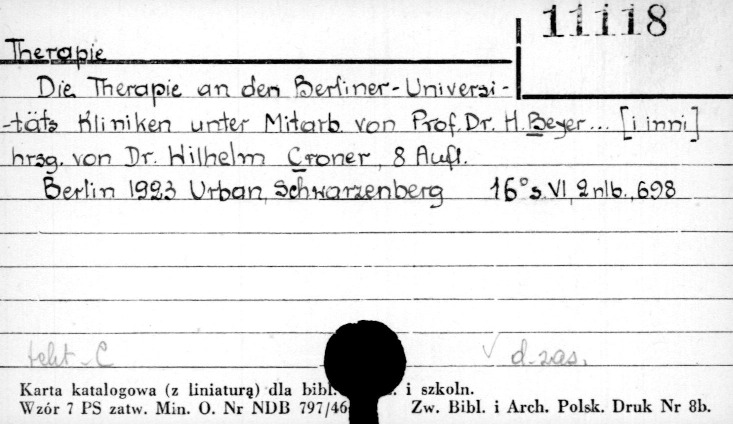 11118
Therapie
Die Therapie an den Berliner-Universi-
-täts Kliniken unter Mitarb. von Prof. Dr. H. Beyer... [i inni]
hrsg. von Dr. Wilhelm Croner, 8 Aufl.
Berlin 1923 Urban, Schwarzenberg 16° s. VI, 2 nlb., 698
d. zas.
Karta katalogowa (z liniaturą) dla bibl. i szkoln.
Wzór 7 PS zatw. Min. O. Nr NDB 797/46 Zw. Bibl. i Arch. Polsk. Druk Nr 8b.